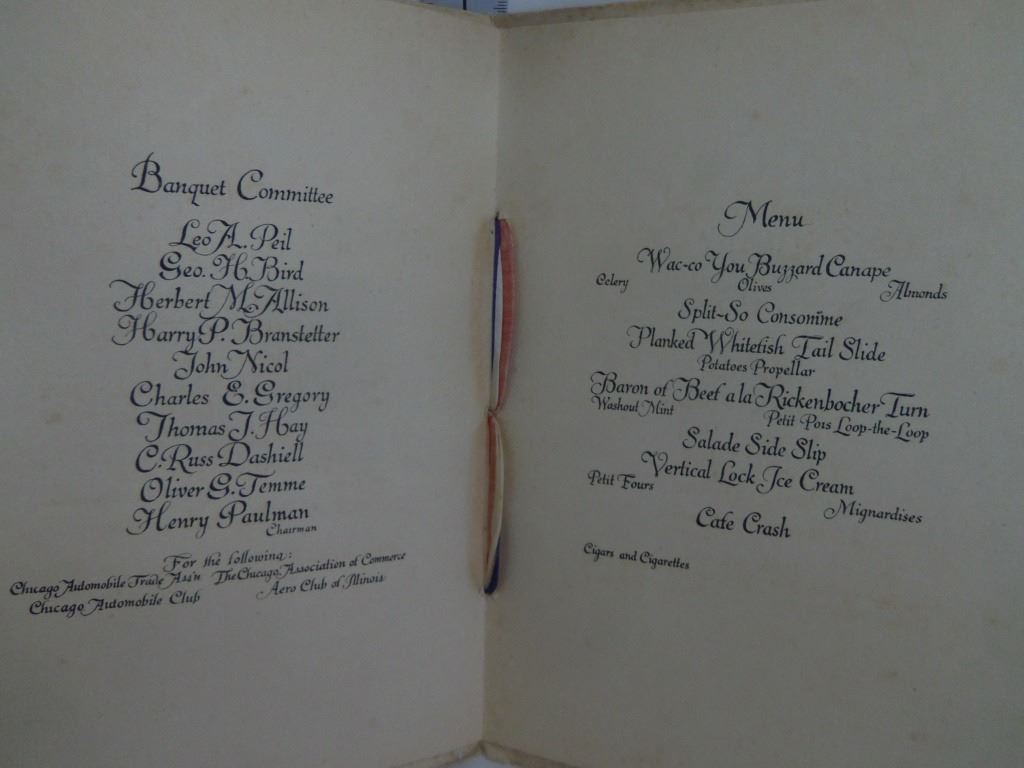 Banquet Committee
Leo A. Peil
Geo. H. Bird
Herbert M. Allison
Harry P. Branstetter
John Nicol
Charles E. Gregory
Thomas J. Hay
C. Russ Dashiell
Oliver G. Temme
Henry Paulman
Chairman
For the following:
Chicago Automobile Trade Ass'n The Chicago Association of Commerce
Chicago Automobile Club Aero Club of Illinois
Menu
Wac-co You Buzzard Canape
Celery Olives Almonds
Split-So Consomme
Planked Whitefish Tail Slide
Potatoes Propellar
Baron of Beef a la Rickenbocher Turn
Washout Mint Petit Pois Loop-the-Loop
Salade Side Slip
Vertical Lock Ice Cream
Petit Fours Mignardises
Cafe Crash
Cigars and Cigarettes